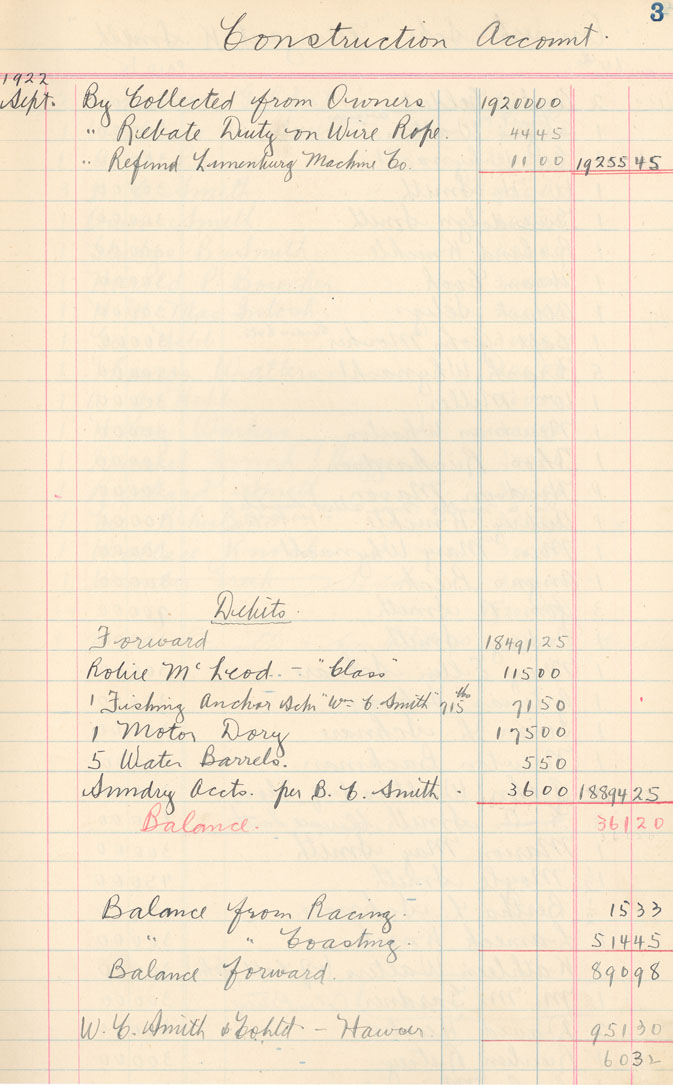 3
Construction Account.
1922
Sept. By Collected from Owners 1920000
" Rebate Duty on Wire Rope. 4445
" Refund Lunenburg Machine Co. 1100 1925545
Debits.
Forward 1849125
Robie McLeod. - "Class" 11500
1 Fishing Anchor Schr "Wm C. Smith" 715 lbs 7150
1 Motor Dory 17500
5 Water Barrels. 550
Sundry Accts. per B. C. Smith. 3600 1889425
Balance. 36120
Balance from Racing. 1533
" " Coasting. 51445
Balance forward. 89098
W. C. Smith & Co Ltd - Hawser 95130
6032